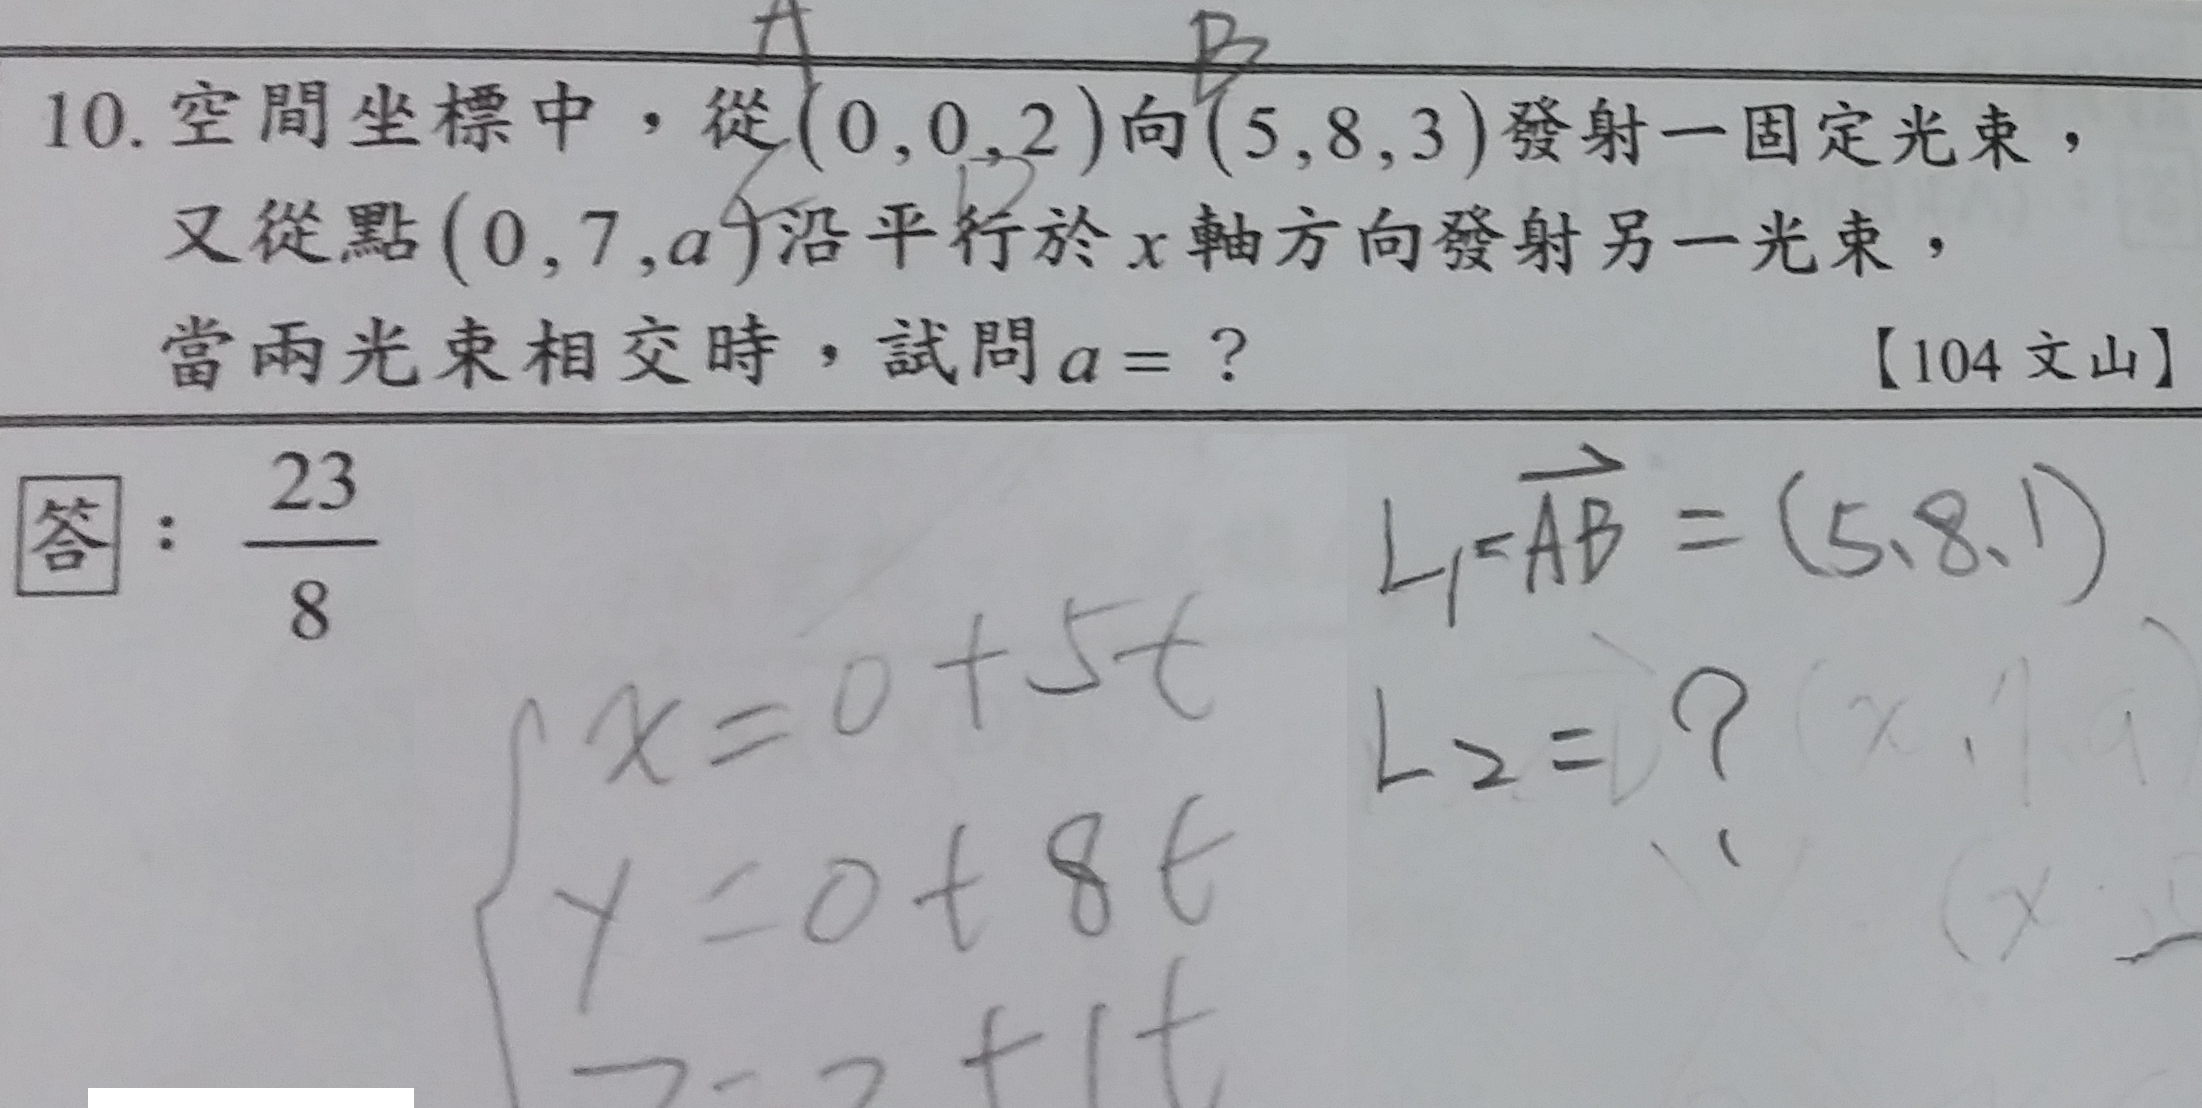 A B
10. 空間坐標中，從(0,0,2)向(5,8,3)發射一固定光束，
又從點(0,7,a)沿平行於x軸方向發射另一光束，
當兩光束相交時，試問a=？ 【104 文山】
答： 23/8
L₁=AB⃗ = (5、8、1)
L₂ = ?
x = 0 + 5t
y = 0 + 8t
+ 1t